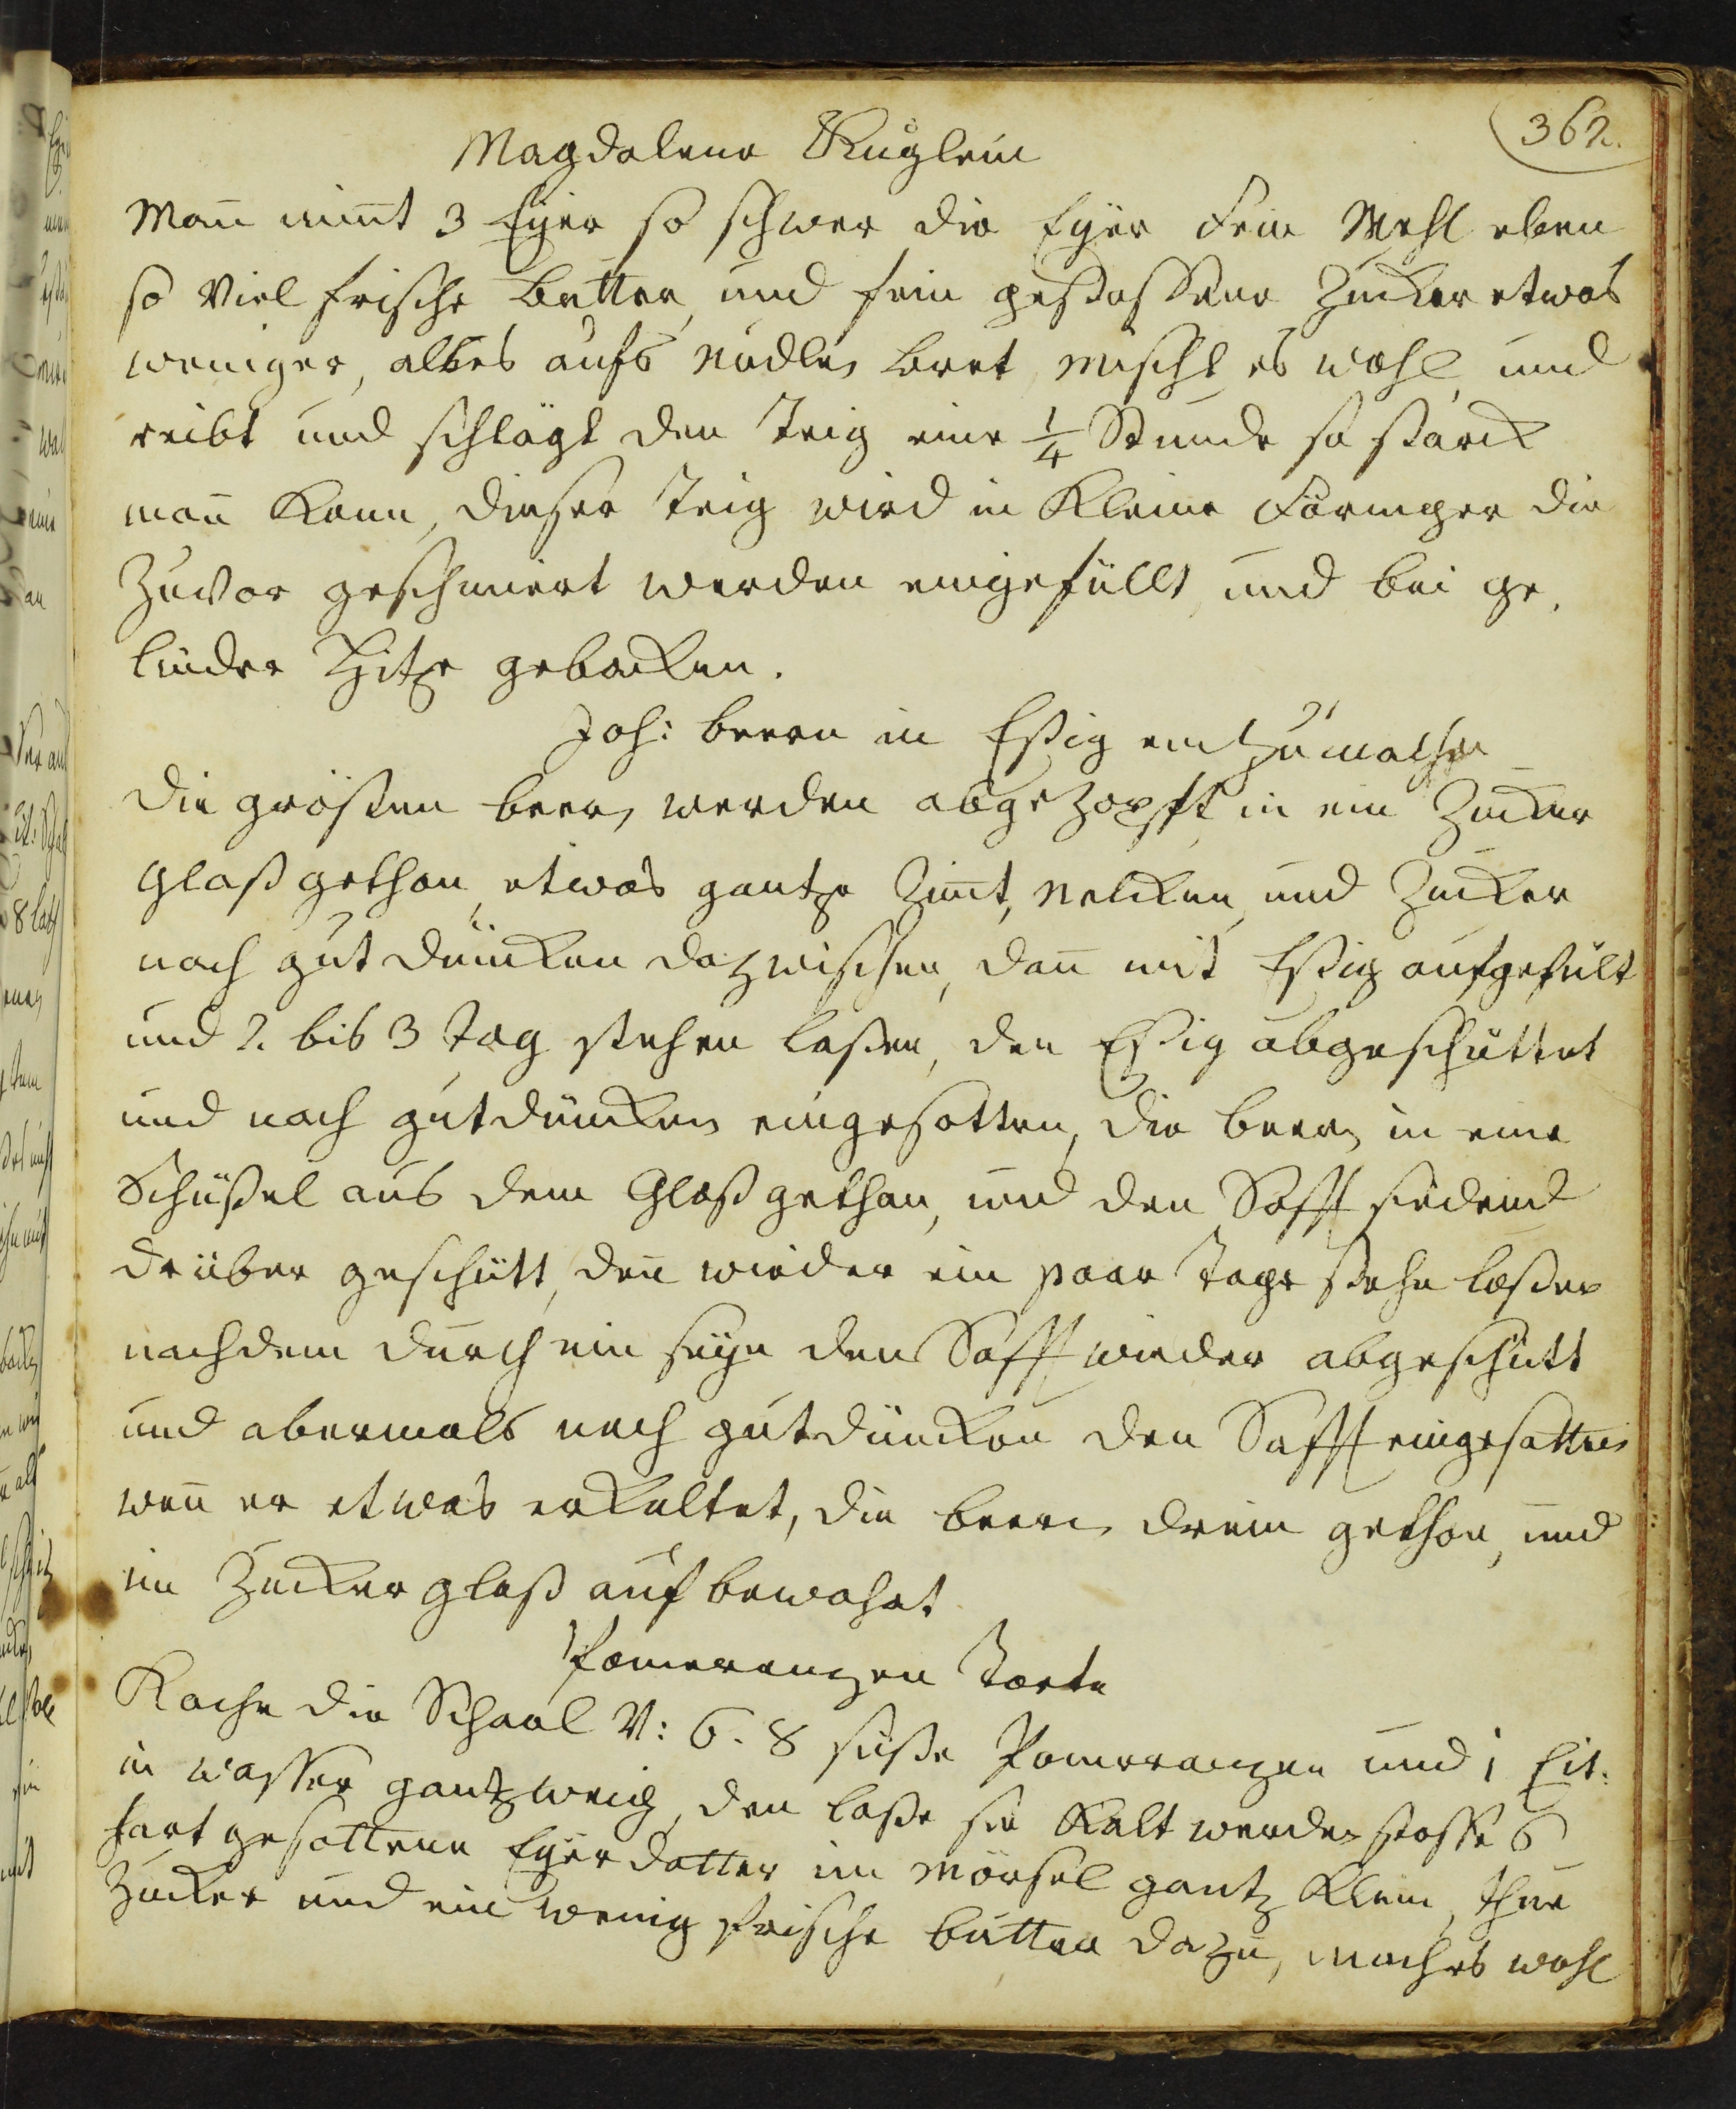 362.
Magdalena Kuglein
Man̄ nim̄t 3 Eyer so schwer die Eyer fein Mehl eben
so viel frische butter, und fein gestossene Zucker etwas
weniger, alles aufs nudlen bret, mischt es wohl, und
reibt und schlägt den Teig eine 1/4 Stunde so starck
man̄ kann, dieser Teig wird in kleine Förmger die
zuvor geschmiert werden eingefüllt, und bei ge,
linder Hitze gebacken.
Joh: beern in Eßig ein zu machen
die grösten beern werden abgezopft in ein Zucker
Glaß gethan, etwas gantze Zim̄t, Nelcken und Zucker
nach gut düncken dazwischen, dan̄ mit Eßig aufgefült
und 2. bis 3 Tag stehen laßen, den Eßig abgeschüttet
und nach gutdüncken eingesotten, die beern in eine
Schüßel aus dem Glaß gethan, und den Safft siedend
drüber geschütt, den̄ wieder ein paar Tage stehn laßen
nachdem durch ein seye den Safft wieder abgeschütt
und abermals nach gutdüncken den Safft eingesotten
wen̄ er etwas erkaltet, die beern drein gethan, und
im Zucker glaß auf bewahrt
Pomeranzen Torte
Koche die Schaal v: 6. 8 süße Pomeranzen und 1 Cit:
in wasser gantz weich, den laße sie kalt werden stosse 6
hart gesottene Eyerdotter im Mörsel gantz klein, thue
Zucker und ein wenig frische butter dazu, mach es wohl